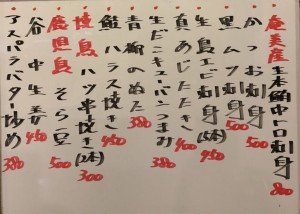 奄美産 生本鮪中トロ刺身 800
かつお刺身 500
黒ムツ刺身 500
エビ刺身(5本) 950
真あじたたき 400
生だこキューバンつまみ 380
青柳のぬた 380
鮭ハラス焼き 450
ハツ串焼き(2本) 300
鹿児島 そら豆 500
谷中生姜 450
アスパラバター炒め 380